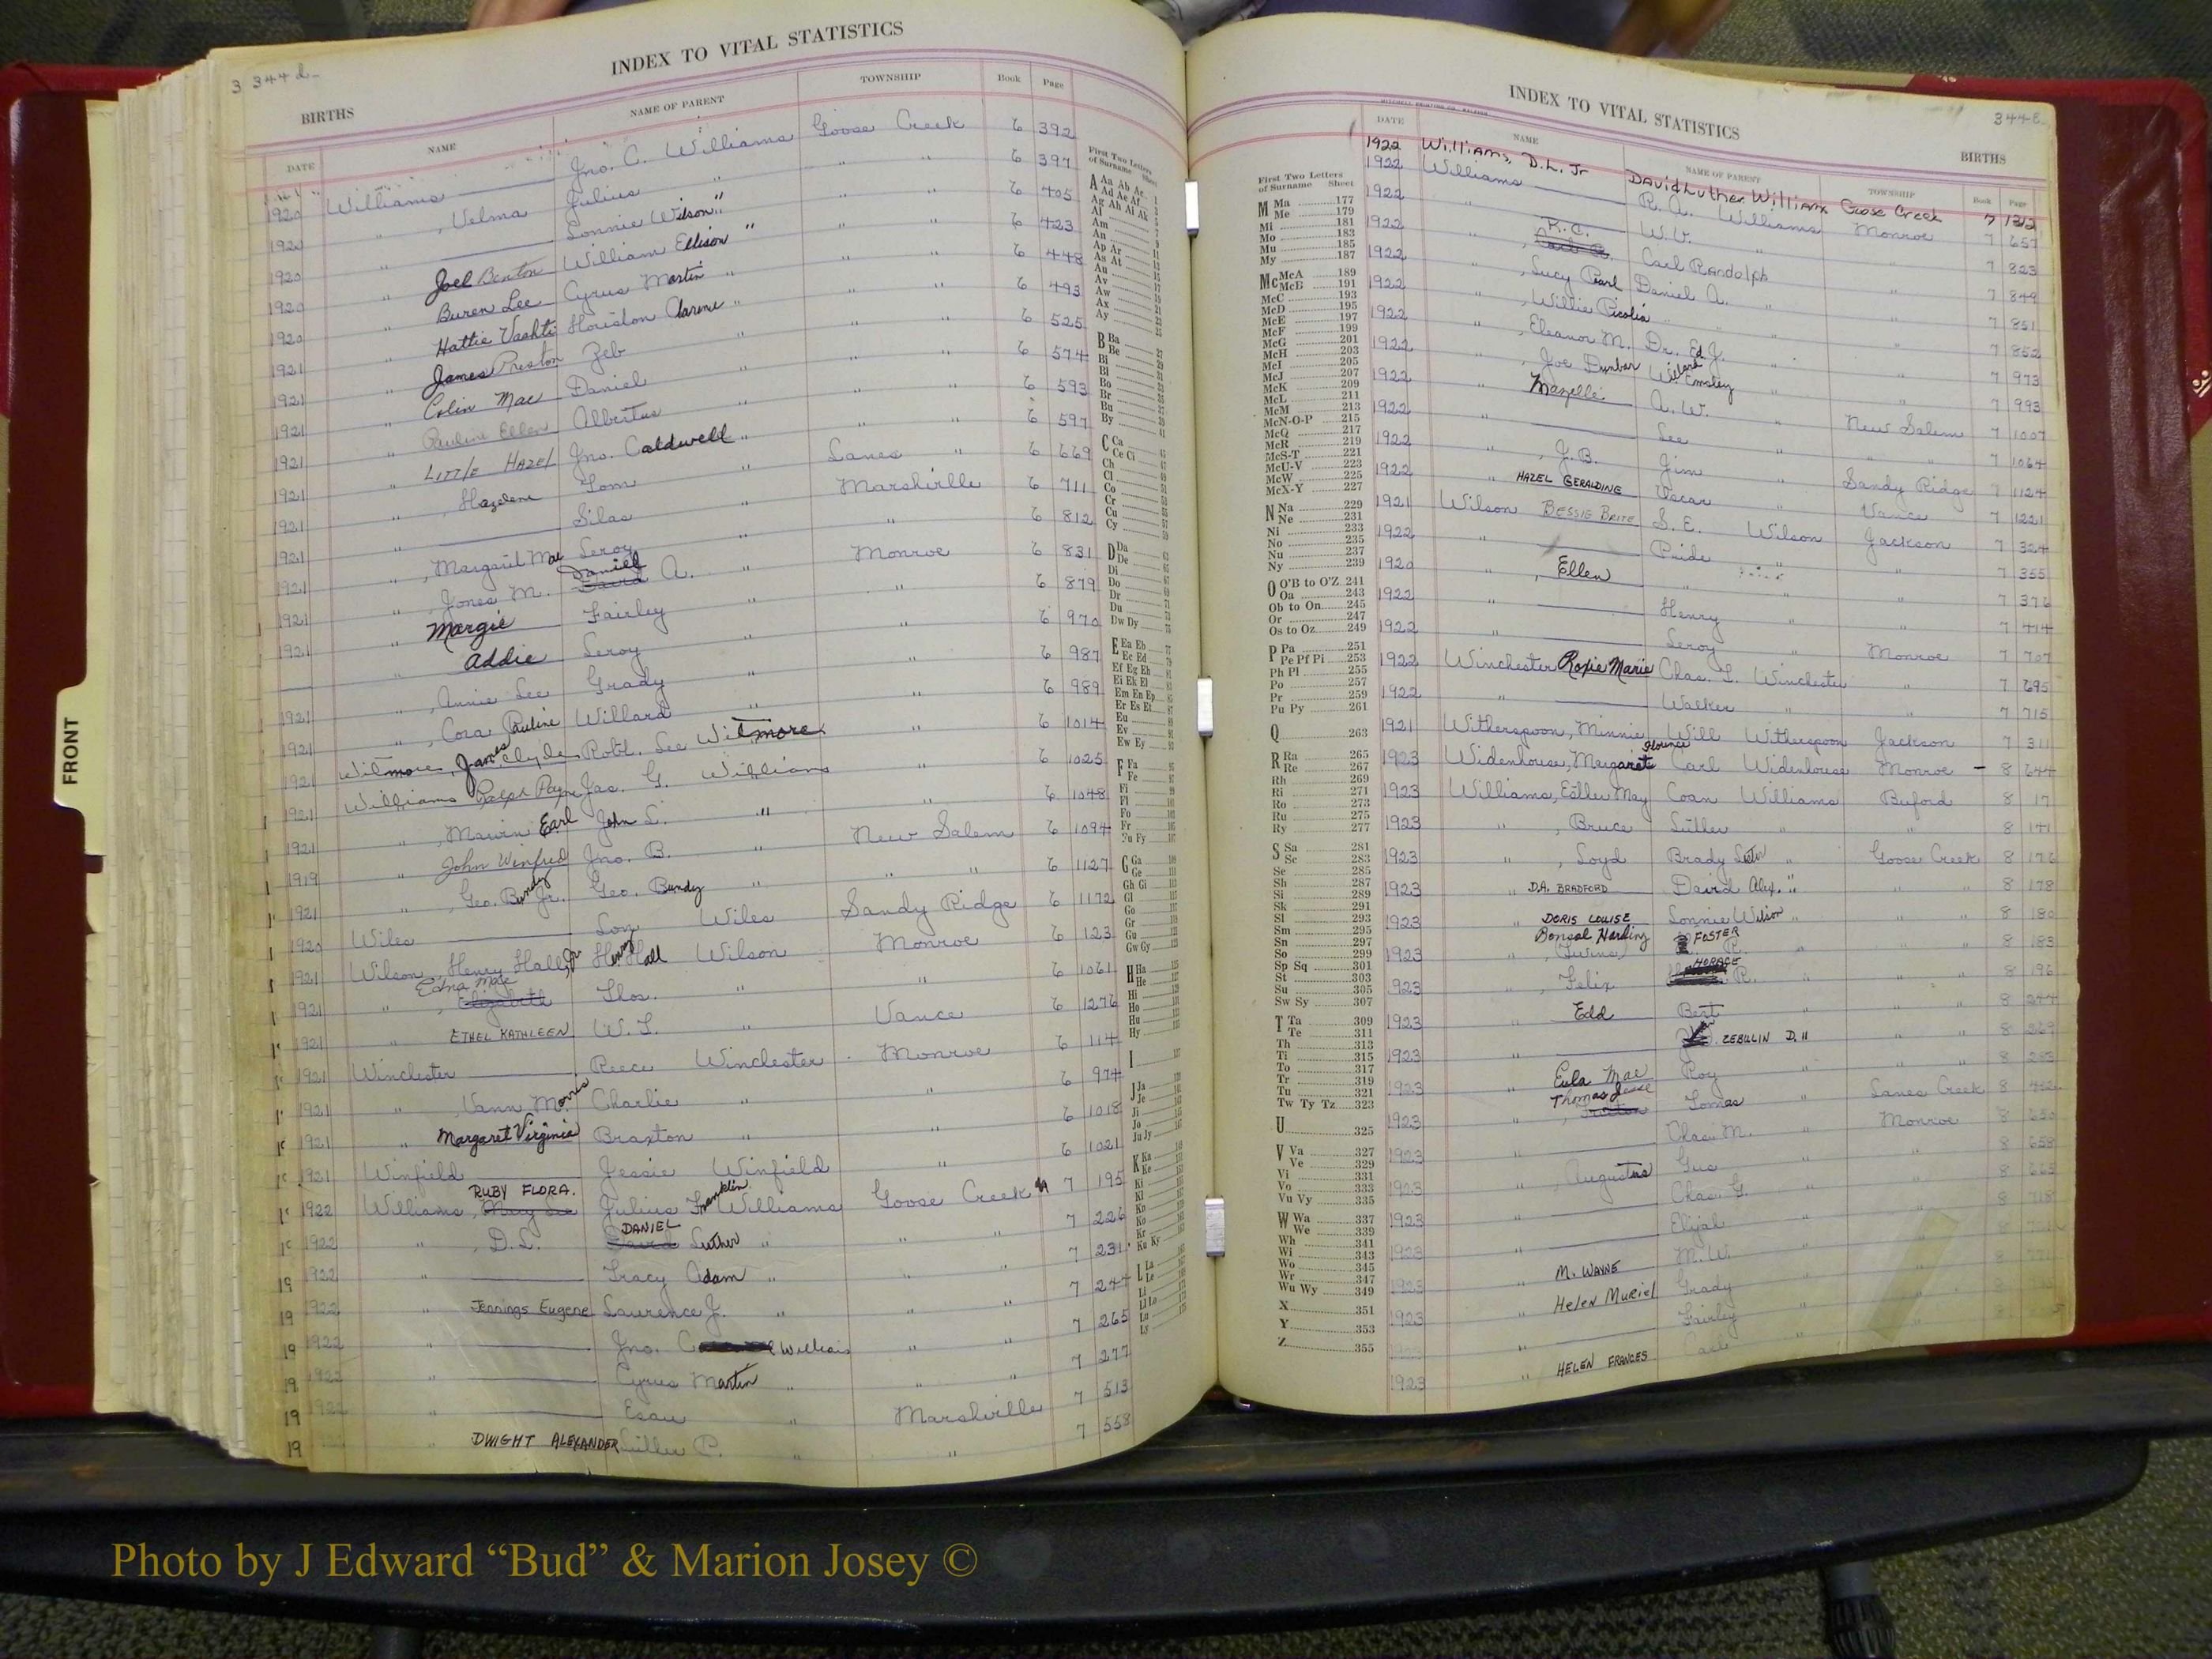 3 344 d
INDEX TO VITAL STATISTICS
BIRTHS
DATE NAME NAME OF PARENT TOWNSHIP Book Page
1920 Williams Jno. C. Williams Goose Creek 6 392
" , Velma Julius " " " 6 397
1920 Lonnie Wilson " " " 6 405
1920 " Joel Benton William Ellison " " " 6 423
1920 " Buren Lee Cyrus Martin " " " 6 448
1920 " Hattie Vashti Houston " " " 6 493
1921 " James Preston Zeb " " " 6 525
1921 " Colin Mac Daniel " " " 6 574
1921 " Pauline Ellen Albertus " " " 6 593
1921 " LITTLE HAZEL Jno. Caldwell " " " 6 597
1921 " , Hazelene Tom " Lanes " 6 669
1921 Silas " Marshville 6 711
1921 " , Margaret Mae Leroy " " 6 812
1921 " , Jones M. Daniel A. " Monroe 6 831
1921 " Margie Fairley " " 6 879
" Addie Leroy " " 6 970
1921 " , Annie Lee Grady " " 6 987
1921 " , Cora Pauline Willard " " 6 989
1921 Witmore, James Clyde Robt. Lee Witmore " 6 1014
1921 Williams Ralph Payne Jas. G. Williams " 6 1025
1921 " , Marvin Earl John L. " " 6 1048
1919 " John Winfred Jno. B. " New Salem 6 1094
1921 " , Geo. Bundy Jr. Geo. Bundy " " " 6 1127
1920 Wiles Lon Wiles Sandy Ridge 6 1172
1921 Wilson, Henry Hall Jr Henry Hall Wilson Monroe 6 123
1921 " , Edna Mae Elizabeth Thos. " " 6 1061
1921 " ETHEL KATHLEEN W. L. " Vance 6 1276
1921 Winchester Reece Winchester Monroe 6 114
1921 " , Vann Morris Charlie " " 6 974
1921 " Margaret Virginia Braxton " " 6 1018
1921 Winfield Jessie Winfield " 6 1021
1922 Williams, RUBY FLORA. Julius Franklin Williams Goose Creek 7 195
1922 " , D. L. DANIEL Luther " " " 7 226
1922 " Tracy Adam " " " 7 231
1922 " Jennings Eugene Laurence J. " " " 7 247
1922 " Jno. C Williams " " 7 265
1922 " Cyrus Martin " " " 7 277
1922 " Esau " Marshville 7 513
" DWIGHT ALEXANDER Luther C. " " 7 558
FRONT
First Two Letters of Surname Sheet
A Aa Ab Ac
Ad Ae Af
Ag Ah Ai Ak
Al
Am
An
Ap Ar
As At
Au
Av
Aw
Ax
Ay
B Ba
Be
Bi
Bl
Bo
Br
Bu
By
C Ca
Ce Ci
Ch
Cl
Co
Cr
Cu
Cy
D Da
De
Di
Do
Dr
Du
Dw Dy
E Ea Eb
Ec Ed
Ef Eg Eh
Ei Ek El
Em En Ep
Er Es Et
Eu
Ev
Ew Ey
F Fa
Fe
Fi
Fl
Fo
Fr
Fu Fy
G Ga
Ge
Gh Gi
Gl
Go
Gr
Gu
Gw Gy
H Ha
He
Hi
Ho
Hu
Hy
I
J Ja
Je
Ji
Jo
Ju Jy
K Ka
Ke
Ki
Kl
Kn
Ko
Kr
Ku Ky
L La
Le
Li
Ll Lo
Lu
Ly
INDEX TO VITAL STATISTICS
344 e
BIRTHS
DATE NAME NAME OF PARENT TOWNSHIP Book Page
1922 Williams, D.L. Jr David Luther Williams Goose Creek 7 1312
1922 Williams R. A. Williams Monroe 7 657
1922 " W. V. " " 7 823
1922 " , R. C. Carl Randolph " " 7 849
1922 " , Lucy Pearl Daniel A. " " 7 851
1922 " , Willie Picolia " " " 7 852
1922 " , Eleanor M. Dr. Ed J. " " 7 973
1922 " , Joe Dunbar Willard Emsley " " 7 993
1922 " Mazelle A. W. " New Salem 7 1007
1922 " Lee " " " 7 1064
1922 " , J. B. Jim " Sandy Ridge 7 1124
1922 " HAZEL GERALDINE Oscar " Vance 7 1221
1921 Wilson BESSIE BRITE S. E. Wilson Jackson 7 324
1922 Pride " " 7 355
1920 " , Ellen " " " 7 376
1922 " Henry " " 7 414
1922 " Leroy " Monroe 7 707
1922 Winchester Roxie Marie Chas. L. Winchester " 7 695
1922 " Walker " " 7 715
1921 Witherspoon, Minnie Will Witherspoon Jackson 7 311
1923 Widenhouse, Margaret Florence Carl Widenhouse Monroe - 8 644
1923 Williams, Esther May Coan Williams Buford 8 17
1923 " , Bruce Luther " " 8 141
1923 " , Loyd Brady Lester " Goose Creek 8 176
1923 " D.A. BRADFORD David Alex. " " " 8 178
1923 " DORIS LOUISE Lonnie Wilson " " " 8 180
1923 " Bonsal Harding , Twins FOSTER R. " " " 8 183
1923 " , Felix HORACE R. " " " 8 196
1923 " Edd Bert " " " 8 244
1923 " ZEBILLIN D. " " " 8 269
1923 " Eula Mae Roy " " " 8 283
1923 " , Thomas Jesse Tomas " Lanes Creek 8
1923 " Chas. M. " Monroe 8 650
1923 " , Augustus Gus " " 8 658
1923 " Chas. G. " " 8 665
1923 " Elijah " " 8 718
1923 " M. WAYNE M. W. " "
1923 " Helen Muriel Grady " "
1923 " Fairley " "
1923 " HELEN FRANCES Carl "
First Two Letters of Surname Sheet
M Ma 177
Me 179
Mi 181
Mo 183
Mu 185
My 187
Mc McA 189
McB 191
McC 193
McD 195
McE 197
McF 199
McG 201
McH 203
McI 205
McJ 207
McK 209
McL 211
McM 213
McN-O-P 215
McQ 217
McR 219
McS-T 221
McU-V 223
McW 225
McX-Y 227
N Na 229
Ne 231
Ni 233
No 235
Nu 237
Ny 239
O O'B to O'Z 241
Oa 243
Ob to On 245
Or 247
Os to Oz 249
P Pa 251
Pe Pf Pi 253
Ph Pl 255
Po 257
Pr 259
Pu Py 261
Q 263
R Ra 265
Re 267
Rh 269
Ri 271
Ro 273
Ru 275
Ry 277
S Sa 281
Sc 283
Se 285
Sh 287
Si 289
Sk 291
Sl 293
Sm 295
Sn 297
So 299
Sp Sq 301
St 303
Su 305
Sw Sy 307
T Ta 309
Te 311
Th 313
Ti 315
To 317
Tr 319
Tu 321
Tw Ty Tz 323
U 325
V Va 327
Ve 329
Vi 331
Vo 333
Vu Vy 335
W Wa 337
We 339
Wh 341
Wi 343
Wo 345
Wr 347
Wu Wy 349
X 351
Y 353
Z 355
Photo by J Edward “Bud” & Marion Josey ©